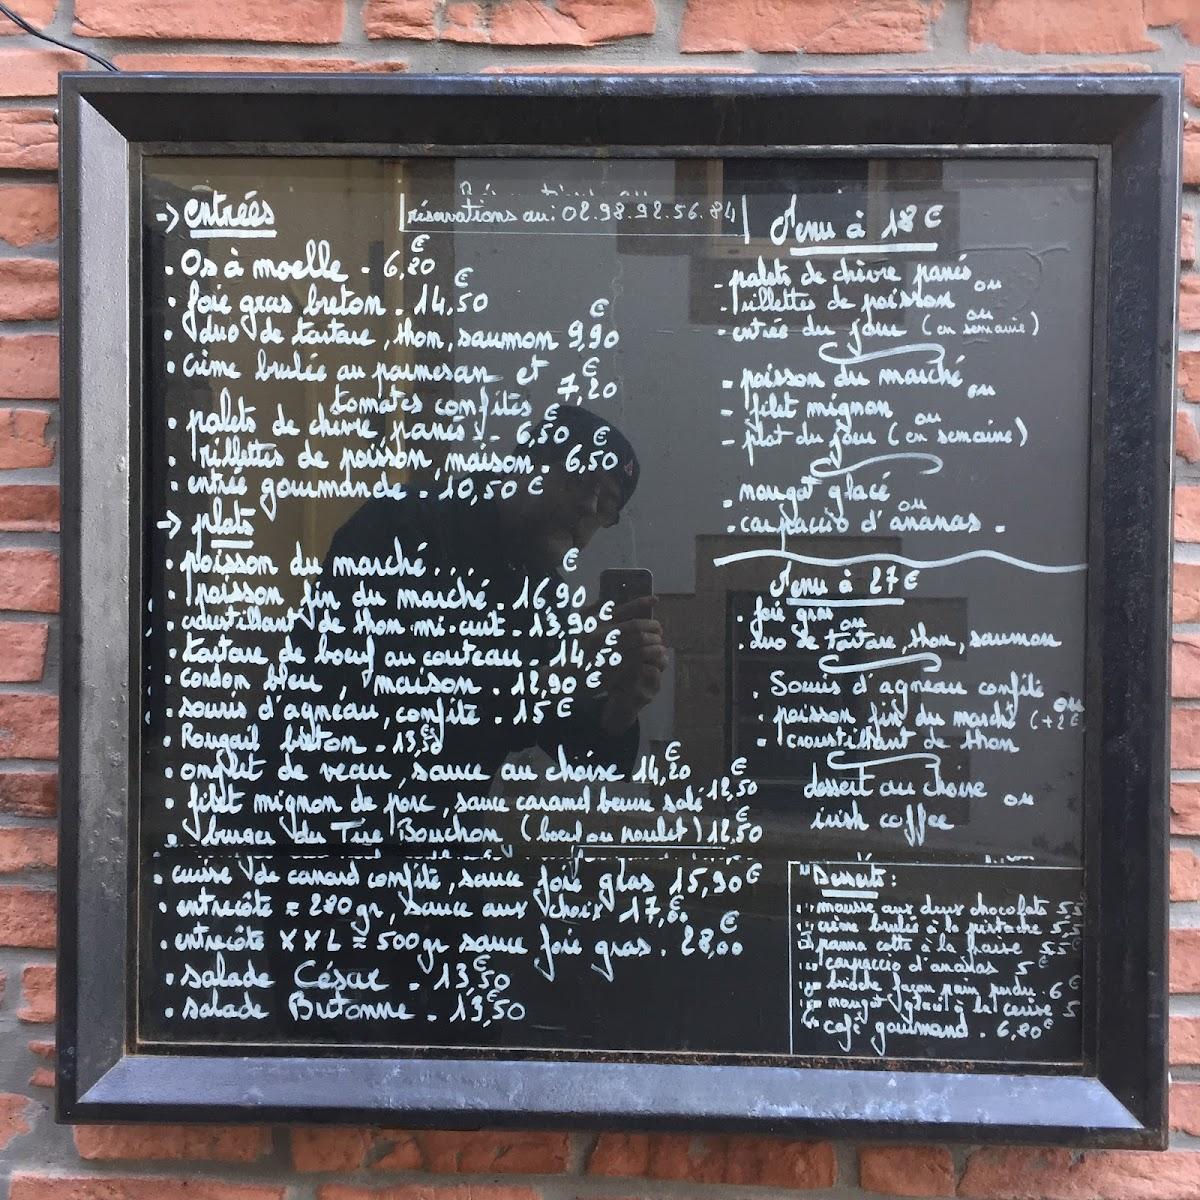 -> entrées
. Os à moelle - 6,20 €
. foie gras breton . 14,50 €
. duo de tartare, thon, saumon 9,90 €
. crème brulée au parmesan et
tomates confites 7,20 €
. palets de chèvre panés . - 6,50 €
. rillettes de poisson, maison . 6,50 €
. entrée gourmande . 10,50 €
-> plats
. poisson du marché...
. poisson fin du marché . 16,90 €
. croustillant de thon mi-cuit . 13,90 €
. tartare de boeuf au couteau . 14,50 €
. cordon bleu, maison . 12,90 €
. souris d'agneau, confite . 15 €
. Rougail breton . 13,50 €
. onglet de veau, sauce au choix 14,20 €
. filet mignon de porc, sauce caramel beurre salé 12,50 €
. burger du Tire Bouchon (boeuf ou poulet) 12,50 €
. cuisse de canard confite, sauce foie gras 15,90 €
. entrecôte = 280 gr, sauce aux choix 17,
. entrecôte XXL = 500 gr sauce foie gras . 28,00 €
. salade César . 13,50 €
. salade Bretonne . 13,50 €
réservations au: 02.98.92.56.84
Menu à 18 €
- palets de chèvre panés ou
- rillettes de poisson ou
- entrée du jour (en semaine)
- poisson du marché ou
- filet mignon ou
- plat du jour (en semaine)
. nougat glacé ou
. carpaccio d'ananas .
Menu à 27 €
. foie gras ou
. duo de tartare, thon, saumon
. Souris d'agneau confite ou
. poisson fin du marché (+2 €
. croustillant de thon
dessert au choix ou
irish coffee
Desserts:
mousse aux deux chocolats 5,5
crème brulée à la pistache 5,5
panna cotta à la fraise 5,5
carpaccio d'ananas 5 €
brioche façon pain perdu . 6 €
nougat glacé à la cerise 5
café gourmand . 6,80 €